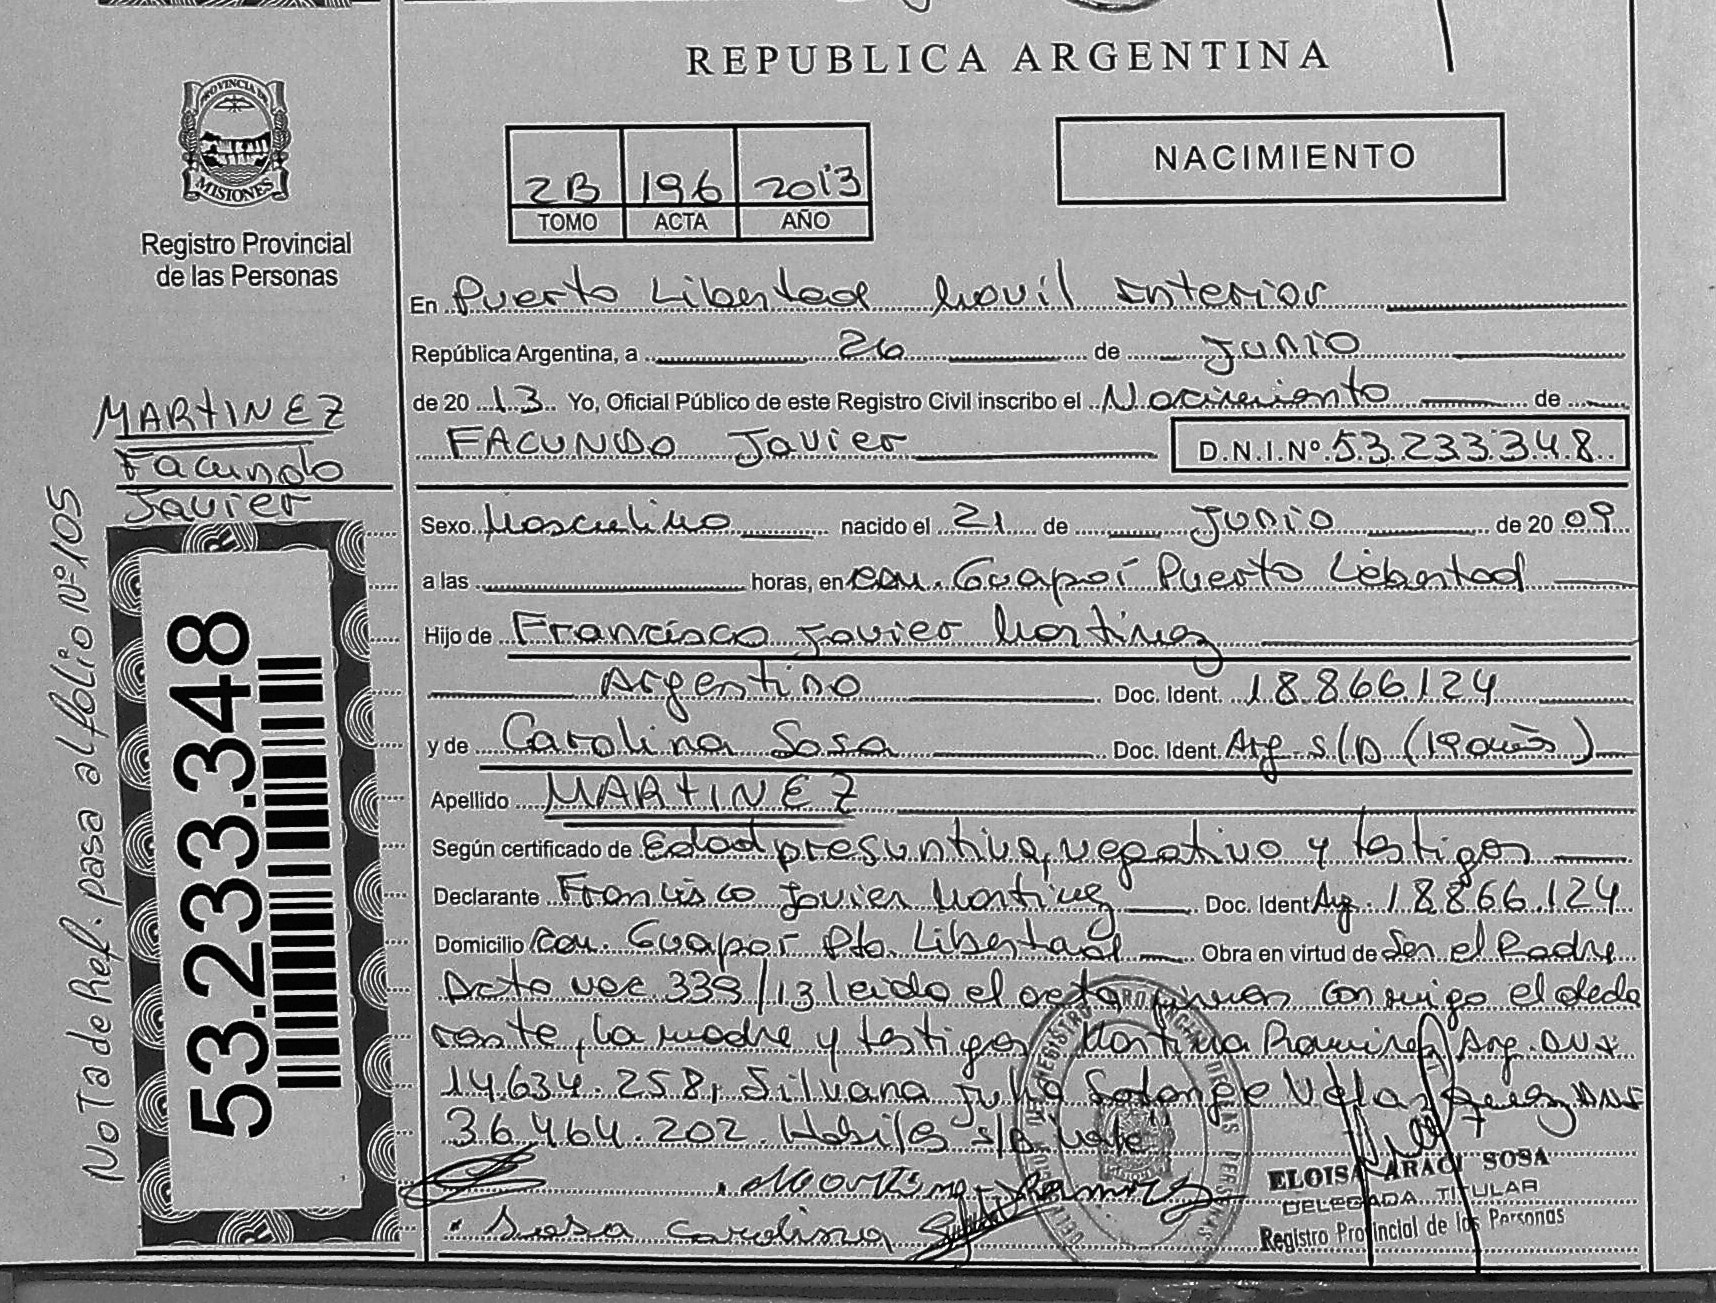 REPUBLICA ARGENTINA
PROVINCIA DE
MISIONES
Registro Provincial
de las Personas
2B 196 2013
TOMO ACTA AÑO
NACIMIENTO
En Puerto Libertad Movil Interior
República Argentina, a 26 de Junio
de 20 13 Yo, Oficial Público de este Registro Civil inscribo el Nacimiento de
FACUNDO Javier D.N.I.Nº 53.233.348
MARTINEZ
Facundo
Javier
Sexo Masculino nacido el 21 de Junio de 20 09
a las horas, en com. Guaporí Puerto Libertad
Hijo de Francisco Javier Martinez
Argentino Doc. Ident. 18.866.124
y de Carolina Sosa Doc. Ident. Arg. s/D (19 años)
Apellido MARTINEZ
Según certificado de Edad presuntiva, negativo y testigos
Declarante Francisco Javier Martinez Doc. Ident Arg. 18.866.124
Domicilio com. Guaporí Pto. Libertad Obra en virtud de Ser el Padre
Acto rec. 339/13 leido el acta, firman conmigo el decla
rante, la madre y testigos Martina Ramirez Arg. DNI
14.634.258, Silvana Julia Solange Velasquez DNI
36.464.202. Habiles s/D Vale
Martina Ramirez
Sosa Carolina
ELOISA ARACI SOSA
DELEGADA TITULAR
Registro Provincial de las Personas
53.233.348
NOTa de Ref. pasa al folio Nº 105